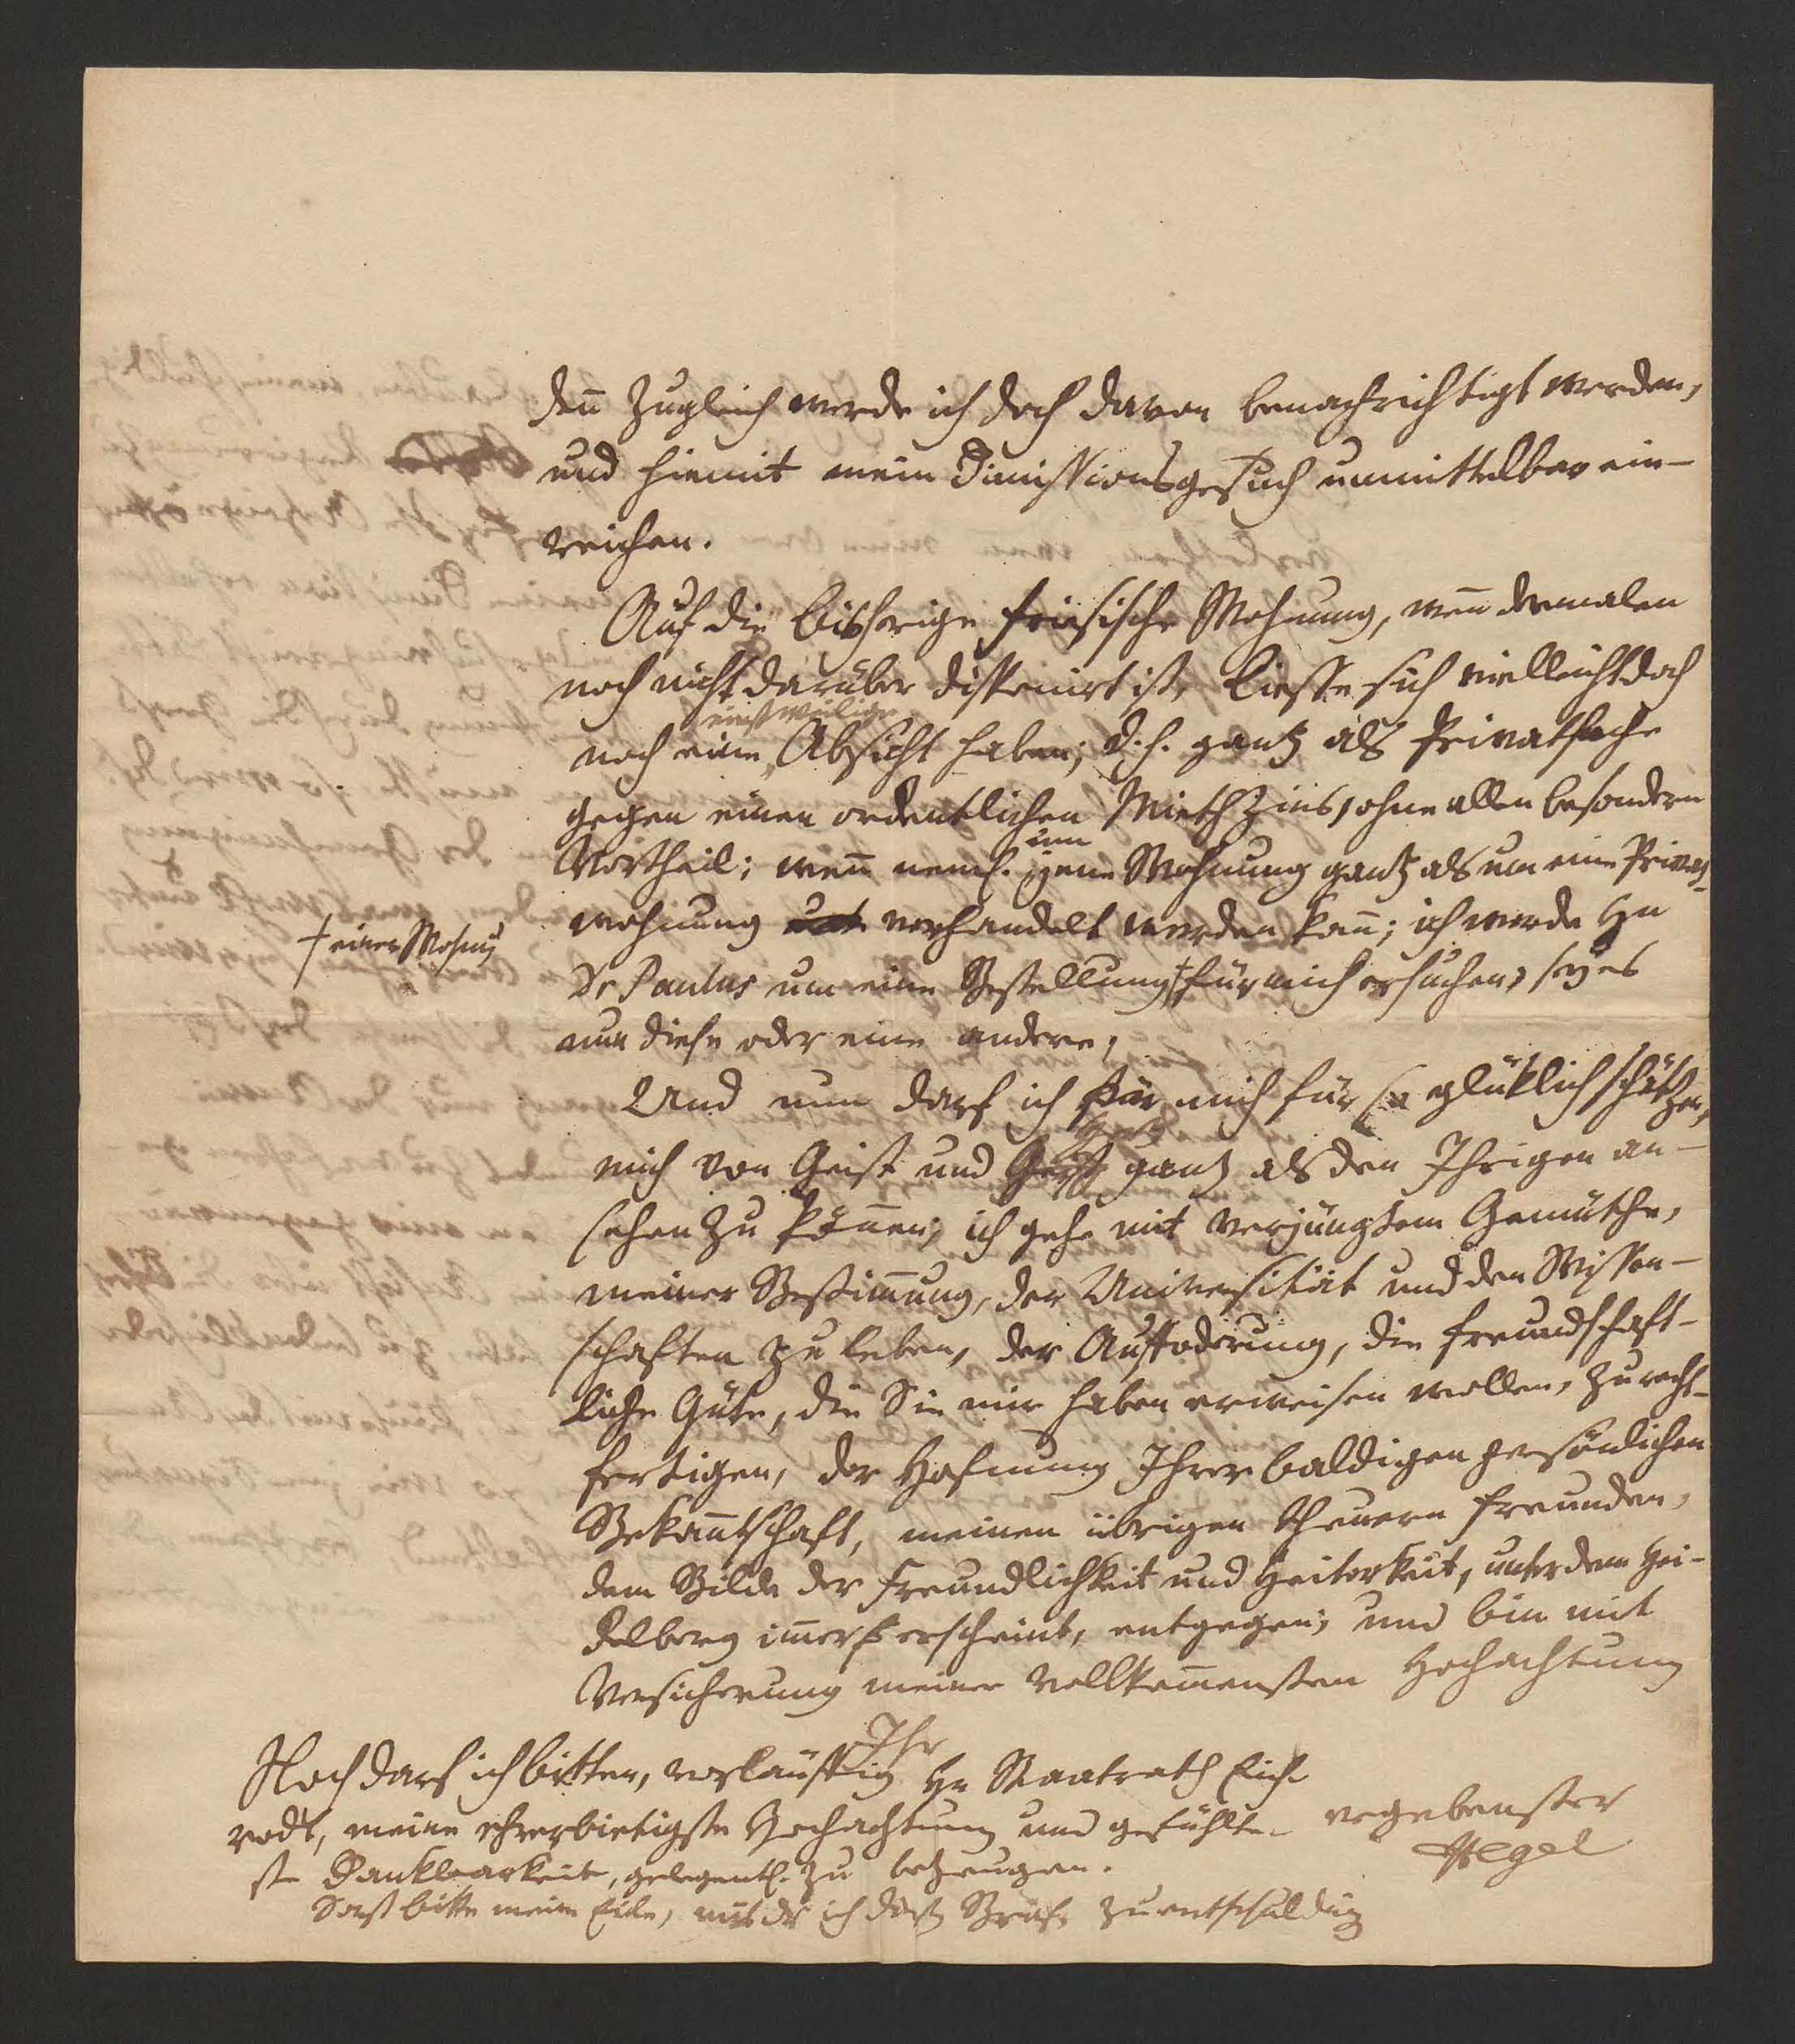 deñ zugleich werde ich doch davon benachrichtigt werden,
und hiemit mein Dimissionsgesuch unmittelbar ein-
reichen.
Auf die bisherige Friesische Wohnung, weñ dermalen
noch nicht darüber disponirt ist, liesse sich vielleicht doch
einstweilige
noch eine Absicht haben; d.h. gantz als Privatsache
gegen einen ordentlichen Miethzins, ohne allen besondern
um
Vortheil; weñ neml. jene Wohnung gantz als um eine Privat-
wohnung verhandelt werden kañ; ich werde Hn
† einer Wohnung
Dr Paulus um eine Bestellung † für mich ersuchen, sey es
nun diese oder eine andere;
Und nun darf ich mich für so glüklich schätzen,
Hertz
mich von Geist und gantz als den Ihrigen an-
sehen zu köñen; ich gehe mit verjüngtem Gemüthe,
meiner Bestim̃ung, der Universität und den Wissen-
schaften zu leben, der Auffoderung, die freundschaft-
liche Güte, die Sie mir haben erweisen wollen, zu recht-
fertigen, der Hofnung Ihrer baldigen persönlichen
Bekañtschaft, meinen übrigen theuern Freunden,
dem Bilde der Freundlichkeit und Heiterkeit, unter dem Hei-
delberg im̃er erscheint, entgegen; und bin mit
Versicherung meiner vollkom̃ensten Hochachtung
Ihr
ergebenster
Hegel
Noch darf ich bitten, vorläuffig Hn Staatrath Eich-
rodt, meine ehrerbietigste Hochachtung und gefühlte-
ste Dankbarkeit, gelegentl. zu bezeugen.
Sonst bitte meine Eile, mit der ich diß schreibe zu entschuldig